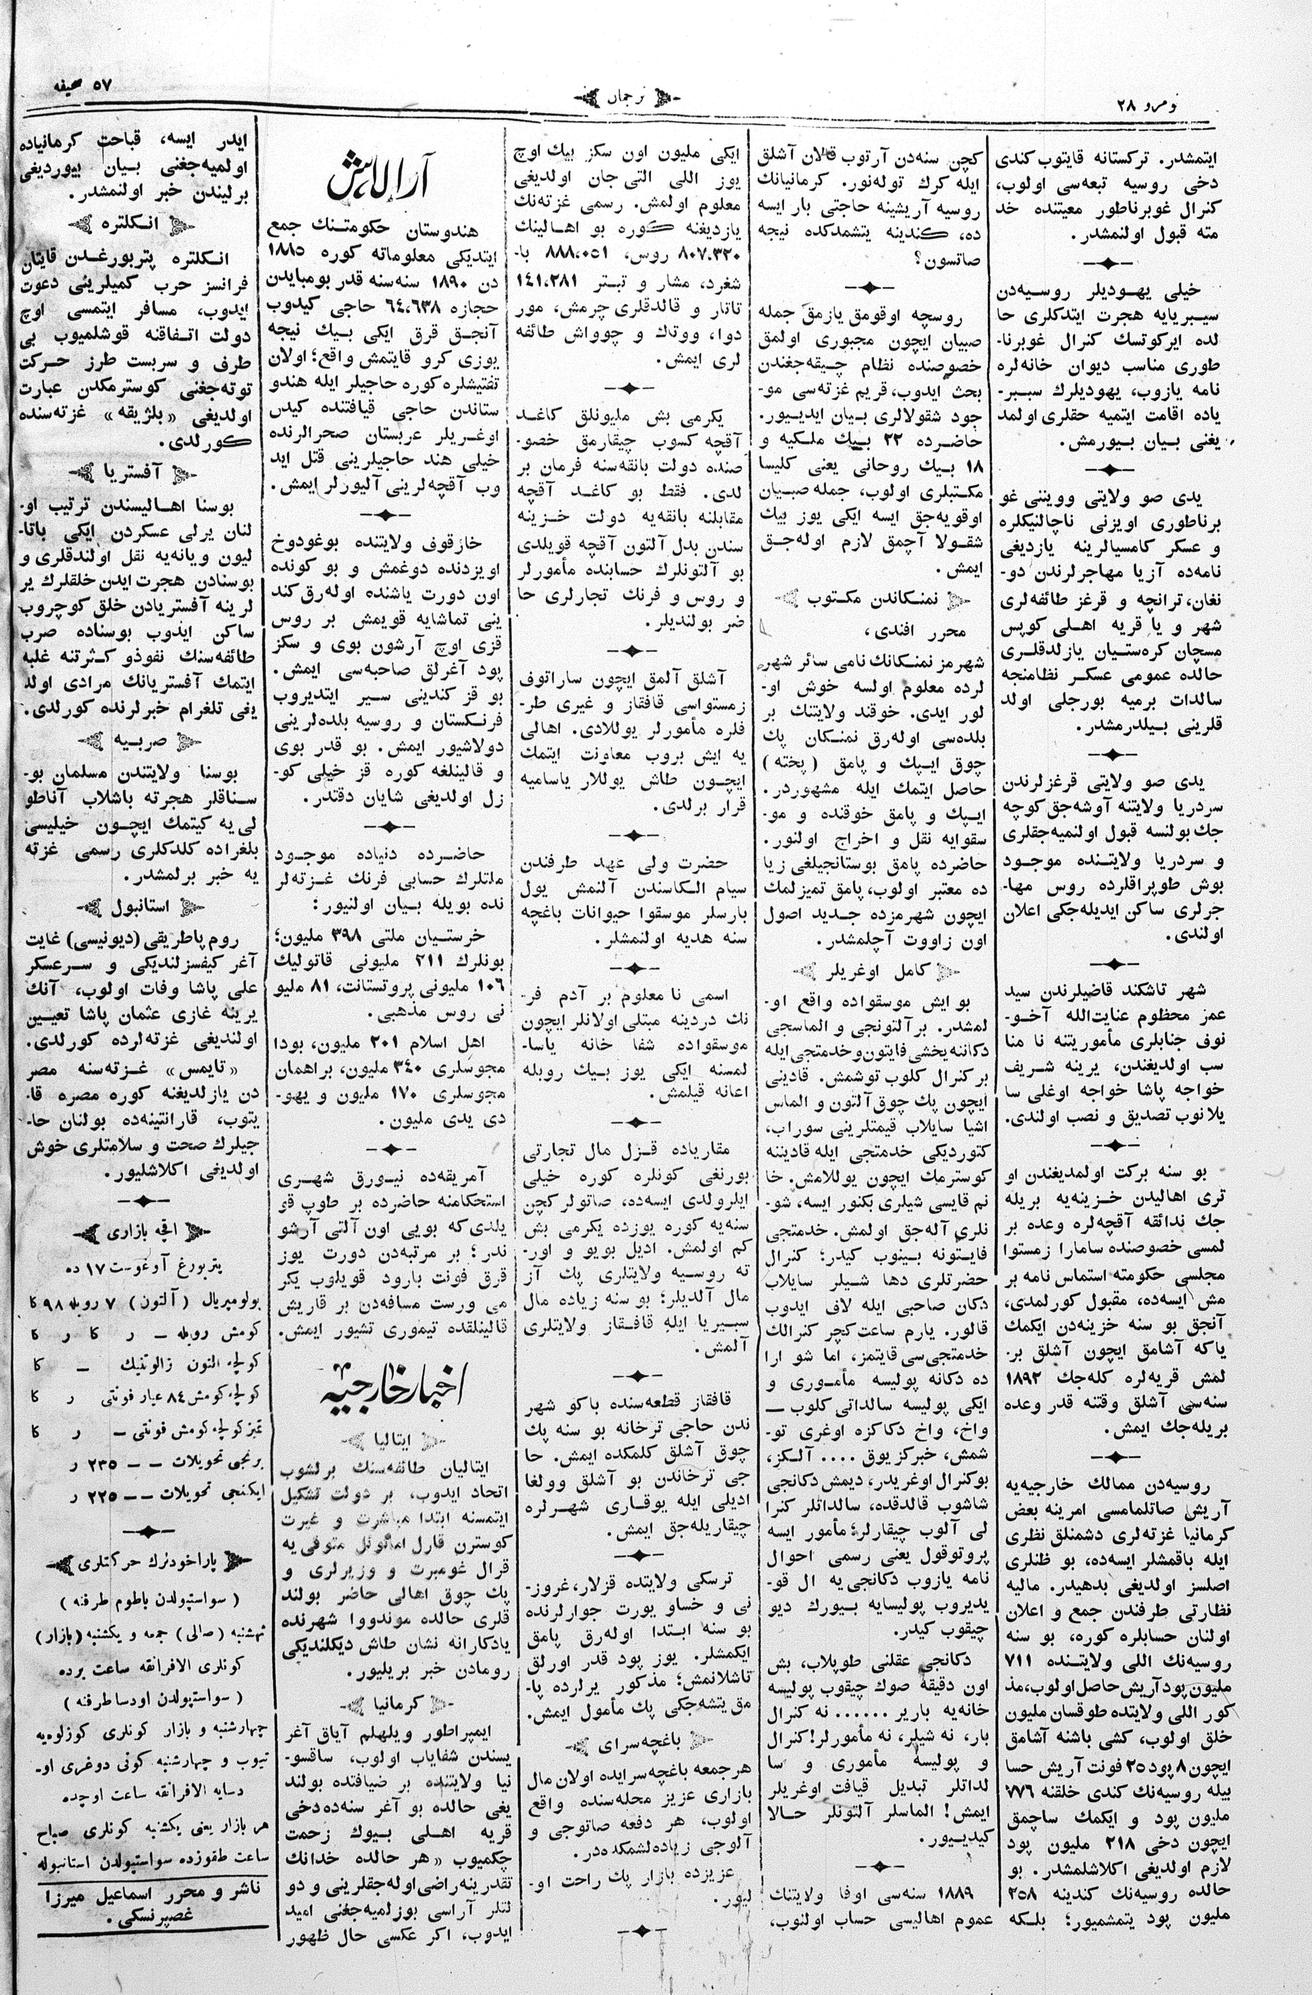 نومرو ٢٨
ترجمان
٥٧ صحيفه
ايتمشدر. تركستانه قايتوب كندى
دخى روسيه تبعه‌سى اولوب،
كنرال غوبرناطور معيتنده خد
مته قبول اولنمشدر.
خيلى يهوديلر روسيه‌دن
سيبريايه هجرت ايتدكلرى حا
لده ايركوتسك كنرال غوبرنا-
طورى مناسب ديوان خانه‌لره
نامه يازوب، يهوديلرك سيبر-
ياده اقامت ايتميه حقلرى اولمد
يغنى بيان بيورمش.
يدى صو ولايتى وويننى غو
برناطورى اويزنى ناچالنيكلره
و عسكر كامسيالرينه يازديغى
نامه‌ده آزيا مهاجرلرندن دو-
نغان، ترانچه و قرغز طائفه‌لرى
شهر و يا قريه اهلى كوپس
مسچان كره‌ستيان يازلدقلرى
حالده عمومى عسكر نظامنجه
سالدات برميه بورجلى اولد
قلرينى بيلدرمشدر.
يدى صو ولايتى قرغزلرندن
سردريا ولايتنه آوشه‌جق كوچه
جك بولنسه قبول اولنميه‌جقلرى
و سردريا ولايتنده موجود
بوش طوپراقلرده روس مها-
جرلرى ساكن ايديله‌جكى اعلان
اولندى.
شهر تاشكند قاضيلرندن سيد
عمز محظوم عنايت‌الله آخو-
نوف جنابلرى مأموريتنه نا منا
سب اولديغندن، يرينه شريف
خواجه پاشا خواجه اوغلى سا
يلانوب تصديق و نصب اولندى.
بو سنه بركت اولمديغندن او
ترى اهاليدن خزينه‌يه بريله
جك ندائقه آقچه‌لره وعده بر
لمسى خصوصنده سامارا زمستوا
مجلسى حكومته استماس نامه بر
مش ايسه‌ده، مقبول كورلمدى،
آنجق بو سنه خزينه‌دن ايكمك
ياكه آشامق ايچون آشلق بر-
لمش قريه‌لره كله‌جك ١٨٩٢
سنه‌سى آشلق وقتنه قدر وعده
بريله‌جك ايمش.
روسيه‌دن ممالك خارجيه‌يه
آريش صاتلمامسى امرينه بعض
كرمانيا غزته‌لرى دشمنلق نظرى
ايله باقمشلر ايسه‌ده، بو ظنلرى
اصلسز اولديغى بدهيدر. ماليه
نظارتى طرفندن جمع و اعلان
اولنان حسابلره كوره، بو سنه
روسيه‌نك اللى ولايتنده ٧١١
مليون پود آريش حاصل اولوب، مذ
كور اللى ولايتده طوقسان مليون
خلق اولوب، كشى باشنه آشامق
ايچون ٨ پود ٢٥ فونت آريش حسا
بيله روسيه‌نك كندى خلقنه ٧٧٦
مليون پود و ايكمك ساچمق
ايچون دخى ٢١٨ مليون پود
لازم اولديغى اكلاشلمشدر. بو
حالده روسيه‌نك كندينه ٢٥٨
مليون پود يتمشميور؛ بلكه
كچن سنه‌دن آرتوب قالان آشلق
ايله كرك توله‌نور. كرمانيانك
روسيه آريشينه حاجتى بار ايسه
ده، كندينه يتشمدكده نيجه
صاتسون؟
روسچه اوقومق يازمق جمله
صبيان ايچون مجبورى اولمق
خصوصنده نظام چيقه‌جغندن
بحث ايدوب، قريم غزته‌سى مو-
جود شقولالرى بيان ايديور.
حاضرده ٢٢ بيك ملكيه و
١٨ بيك روحانى يعنى كليسا
مكتبلرى اولوب، جمله صبيان
اوقويه‌جق ايسه ايكى يوز بيك
شقولا آچمق لازم اوله‌جق
ايمش.
نمنكاندن مكتوب
محرر افندى،
شهرمز نمنكانك نامى سائر شهر
لرده معلوم اولسه خوش او-
لور ايدى. خوقند ولايتنك بر
بلده‌سى اوله‌رق نمنكان پك
چوق ايپك و پامق (پخته)
حاصل ايتمك ايله مشهوردر.
ايپك و پامق خوقنده و مو-
سقوايه نقل و اخراج اولنور.
حاضرده پامق بوستانجيلغى زيا
ده معتبر اولوب، پامق تميزلمك
ايچون شهرمزده جديد اصول
اون زاووت آچلمشدر.
كامل اوغريلر
بو ايش موسقواده واقع او-
لمشدر. بر آلتونجى و الماسجى
دكاننه يخشى فايتون و خدمتجى ايله
بر كنرال كلوب توشمش. قادينى
ايچون پك چوق آلتون و الماس
اشيا سايلاب قيمتلرينى سوراب،
كتورديكى خدمتجى ايله قادينه
كوسترمك ايچون يوللامش. خا
نم قايسى شيلرى بكنور ايسه، شو-
نلرى آله‌جق اولمش. خدمتجى
فايتونه بينوب كيدر؛ كنرال
حضرتلرى دها شيلر سايلاب
دكان صاحبى ايله لاف ايدوب
قالور. يارم ساعت كچر كنرالك
خدمتجى‌سى قايتمز، اما شو ارا
ده دكانه پوليسه مأمورى و
ايكى پوليسه سالداتى كلوب —
واخ، واخ دكاكزه اوغرى تو-
شمش، خبركز يوق .... آلكز،
بو كنرال اوغريدر، ديمش دكانجى
شاشوب قالدقده، سالداتلر كنرا
لى آلوب چيقارلر؛ مأمور ايسه
پروتوقول يعنى رسمى احوال
نامه يازوب دكانجى‌يه ال قو-
يديروب پوليسايه بيورك ديو
چيقوب كيدر.
دكانجى عقلنى طوپلاب، بش
اون دقيقه صوك چيقوب پوليسه
خانه‌يه بارير ...... نه كنرال
بار، نه شيلر، نه مأمورلر! كنرال
و پوليسه مأمورى و سا
لداتلر تبديل قيافت اوغريلر
ايمش! الماسلر آلتونلر حالا
كيديور.
١٨٨٩ سنه‌سى اوفا ولايتنك
عموم اهاليسى حساب اولنوب،
ايكى مليون اون سكز بيك اوچ
يوز اللى التى جان اولديغى
معلوم اولمش. رسمى غزته‌نك
يازديغنه كوره بو اهالينك
٨٠٧،٣٢٠ روس، ٨٨٨،٠٥١ با-
شغرد، مشار و تبتر ١٤١،٢٨١
تاتار و قالدقلرى چرمش، مور
دوا، ووتك و چوواش طائفه
لرى ايمش.
يكرمى بش مليونلق كاغد
آقچه كسوب چيقارمق خصو-
صنده دولت بانقه‌سنه فرمان بر
لدى. فقط بو كاغد آقچه
مقابلنه بانقه‌يه دولت خزينه
سندن بدل آلتون آقچه قويلدى
بو آلتونلرك حسابنده مأمورلر
و روس و فرنك تجارلرى حا
ضر بولنديلر.
آشلق آلمق ايچون ساراتوف
زمستواسى قافقاز و غيرى طر-
فلره مأمورلر يوللادى. اهالى
يه ايش بروب معاونت ايتمك
ايچون طاش يوللار ياساميه
قرار برلدى.
حضرت ولى عهد طرفندن
سيام الكاسندن آلنمش يول
بارسلر موسقوا حيوانات باغچه
سنه هديه اولنمشلر.
اسمى نا معلوم بر آدم فر-
نك دردينه مبتلى اولانلر ايچون
موسقواده شفا خانه ياسا-
لمسنه ايكى يوز بيك روبله
اعانه قيلمش.
مقارياده قزل مال تجارتى
بورنغى كونلره كوره خيلى
ايلرولدى ايسه‌ده، صاتولر كچن
سنه‌يه كوره يوزده يكرمى بش
كم اولمش. اديل بويو و اور-
ته روسيه ولايتلرى پك آز
مال آلديلر؛ بو سنه زياده مال
سيبريا ايله قافقاز ولايتلرى
آلمش.
قافقاز قطعه‌سنده باكو شهر
ندن حاجى ترخانه بو سنه پك
چوق آشلق كلمكده ايمش. حا
جى ترخاندن بو آشلق وولغا
اديلى ايله يوقارى شهرلره
چيقاريله‌جق ايمش.
ترسكى ولايتده قزلار، غروز-
نى و خساو يورت جوارلرنده
بو سنه ابتدا اوله‌رق پامق
ايكمشلر. يوز پود قدر اورلق
تاشلانمش؛ مذكور يرلرده پا-
مق يتشه‌جكى پك مأمول ايمش.
باغچه سراى
هر جمعه باغچه‌سرايده اولان مال
بازارى عزيز محله‌سنده واقع
اولوب، هر دفعه صاتوجى و
آلوجى زياده‌لشمكده‌در.
عزيزده بازار پك راحت او-
ليور.
آرالاش
هندوستان حكومتنك جمع
ايتديكى معلوماته كوره ١٨٨٥
دن ١٨٩٠ سنه‌سنه قدر بومبايدن
حجازه ٦٤،٦٣٨ حاجى كيدوب
آنجق قرق ايكى بيك نيجه
يوزى كرو قايتمش واقع؛ اولان
تفتيشلره كوره حاجيلر ايله هندو
ستاندن حاجى قيافتنده كيدن
اوغريلر عربستان صحرالرنده
خيلى هند حاجيلرينى قتل ايد
وب آقچه‌لرينى آليورلر ايمش.
خارقوف ولايتنده بوغودوخ
اويزدنده دوغمش و بو كونده
اون دورت ياشنده اوله‌رق كند
ينى تماشايه قويمش بر روس
قزى اوچ آرشون بوى و سكز
پود آغرلق صاحبه‌سى ايمش.
بو قز كندينى سير ايتديروب
فرنكستان و روسيه بلده‌لرينى
دولاشيور ايمش. بو قدر بوى
و قالينلغه كوره قز خيلى كو-
زل اولديغى شايان دقتدر.
حاضرده دنياده موجود
ملتلرك حسابى فرنك غزته‌لر
نده بويله بيان اولنيور:
خرستيان ملتى ٣٩٨ مليون؛
بونلرك ٢١١ مليونى قاتوليك
١٠٦ مليونى پروتستانت، ٨١ مليو
نى روس مذهبى.
اهل اسلام ٢٠١ مليون، بودا
مجوسلرى ٣٤٠ مليون، براهمان
مجوسلرى ١٧٠ مليون و يهو-
دى يدى مليون.
آمريقه‌ده نيورق شهرى
استحكامنه حاضرده بر طوپ قو
يلدى كه بويى اون آلتى آرشو
ندر؛ بر مرتبه‌دن دورت يوز
قرق فونت بارود قويلوب يكر
مى ورست مسافه‌دن بر قاريش
قالينلقده تيمورى تشيور ايمش.
اخبار خارجيه
ايتاليا
ايتاليان طائفه‌سنك برلشوب
اتحاد ايدوب، بر دولت تشكيل
ايتمسنه ابتدا مباشرت و غيرت
كوسترن قارل امانوئل متوفى‌يه
قرال غومبرت و وزيرلرى و
پك چوق اهالى حاضر بولند
قلرى حالده مونديووا شهرنده
يادكارانه نشان طاش ديكلنديكى
رومادن خبر بريليور.
كرمانيا
ايمپراطور ويلهلم آياق آغر
يسندن شفاياب اولوب، ساقسو-
نيا ولايتنده بر ضيافتده بولند
يغى حالده بو آغر سنه‌ده دخى
قريه اهلى بيوك زحمت
چكميوب «هر حالده خدانك
تقدرينه راضى اوله‌جقلرينى و دو
لتلر آراسى بوزلميه‌جغنى اميد
ايدوب، اكر عكسى حال ظهور
ايدر ايسه، قباحت كرمانياده
اولميه‌جغنى بيان بيورديغى
برليندن خبر اولنمشدر.
انكلتره
انكلتره پتربورغدن قايتان
فرانسز حرب كميلرينى دعوت
ايدوب، مسافر ايتمسى اوچ
دولت اتفاقنه قوشلميوب بى
طرف و سربست طرز حركت
توته‌جغنى كوسترمكدن عبارت
اولديغى «بلژيقه» غزته‌سنده
كورلدى.
آفستريا
بوسنا اهاليسندن ترتيب او-
لنان يرلى عسكردن ايكى باتا-
ليون ويانه‌يه نقل اولندقلرى و
بوسنادن هجرت ايدن خلقلرك ير
لرينه آفستريادن خلق كوچروب
ساكن ايدوب بوسناده صرب
طائفه‌سنك نفوذو كثرتنه غلبه
ايتمك آفستريانك مرادى اولد
يغى تلغرام خبرلرنده كورلدى.
صربيه
بوسنا ولايتندن مسلمان بو-
سناقلر هجرته باشلاب آناطو
لى‌يه كيتمك ايچون خيليسى
بلغراده كلدكلرى رسمى غزته
يه خبر برلمشدر.
استانبول
روم پاطريقى (ديونيسى) غايت
آغر كيفسزلنديكى و سرعسكر
على پاشا وفات اولوب، آنك
يرينه غازى عثمان پاشا تعيين
اولنديغى غزته‌لرده كورلدى.
«تايمس» غزته‌سنه مصر
دن يازلديغنه كوره مصره قا-
يتوب، قارانتينه‌ده بولنان حا-
جيلرك صحت و سلامتلرى خوش
اولديغى اكلاشليور.
اقچه بازارى
پتربورغ آوغوست ١٧ ده
پولومپريال (آلتون) ٧ روبله ٩٨ كا
كومش روبله — ر كا ر كا
كولچه التون زالوتنيك — كا
كولچه كومش ٨٤ عيار فونتى ر كا
تميز كولچه كومش فونتى — ر كا
برنجى تحويلات — — ٢٣٥ ر
ايكنجى تحويلات — — ٢٢٥ ر
پاراخودلرك حركتلرى
(سواستپولدن باطوم طرفنه)
ثهشنبه (صالى) جمعه و يكشنبه (بازار)
كونلرى الافرانقه ساعت برده
(سواستپولدن اودسا طرفنه)
چهارشنبه و بازار كونلرى كوزلويه
تيوب و چهارشنبه كونى دوغرى او-
دسايه الافرانقه ساعت اوچده
هر بازار يعنى يكشنبه كونلرى صباح
ساعت طقوزده سواستپولدن استانبوله
ناشر و محرر اسماعيل ميرزا
غصپرنسكى.